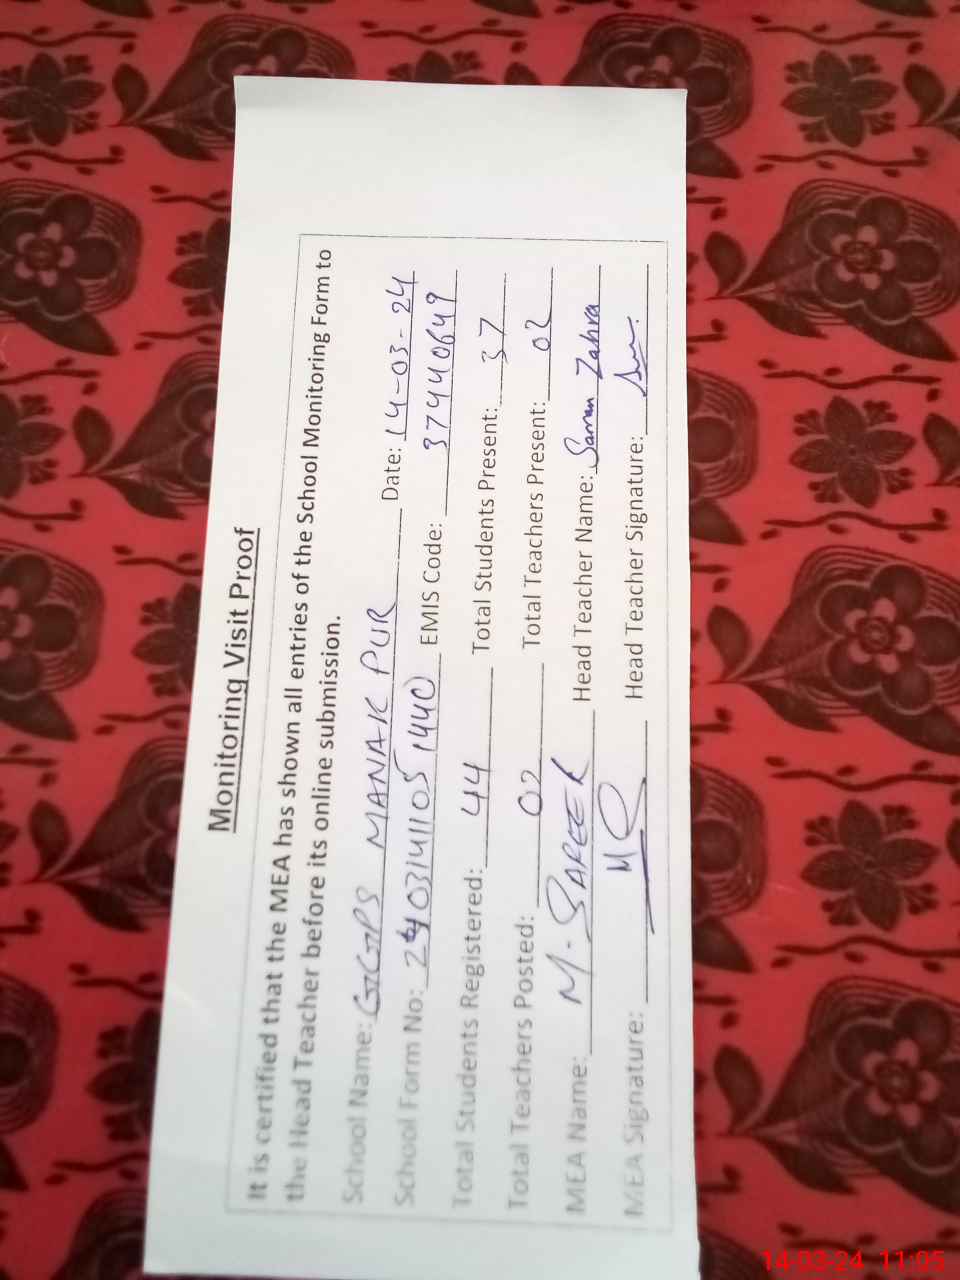 Monitoring Visit Proof
It is certified that the MEA has shown all entries of the School Monitoring Form to
the Head Teacher before its online submission.
School Name: GGPS MANAK PUR Date: 14-03-24
School Form No: EMIS Code: 37440649
Total Students Registered: 44 Total Students Present: 37
Total Teachers Posted: 02 Total Teachers Present: 02
MEA Name: M. SAFEER Head Teacher Name: Saman Zahra
MEA Signature: MS Head Teacher Signature:
14-03-24 11:05